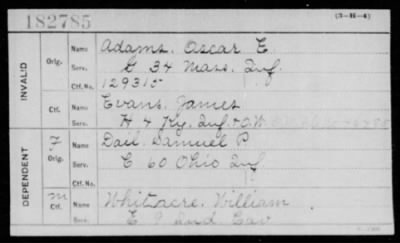 182785
(3-H-4)
INVALID
Orig.
Name Adams, Oscar E.
Serv. G 34 Mass. Inf.
Ctf. No. 129315
Ctf.
Name Evans, James
Serv. H 4 Ky. Inf. + O.W.
DEPENDENT
F
Orig.
Name Dail, Samuel P.
Serv. C 60 Ohio Inf
Ctf. No.
M
Ctf.
Name Whitacre, William
Serv. E 9 Ind. Cav